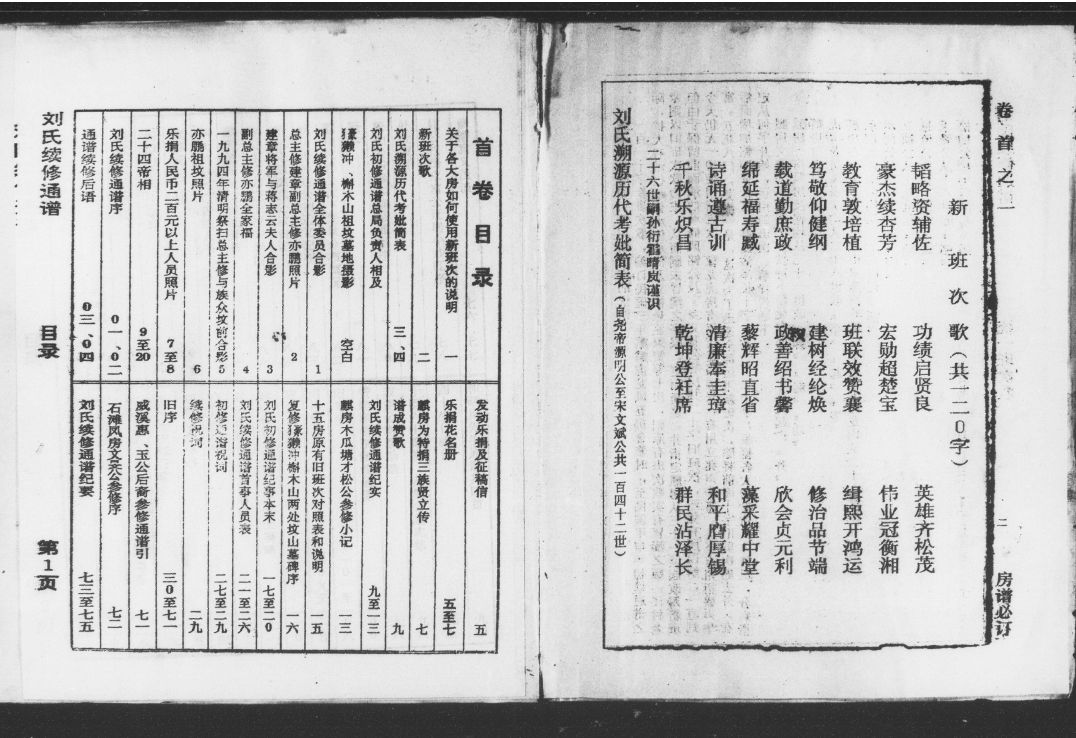 卷首之一
新班次歌(共一二0字)
韬略资辅佐 功绩启贤良 英雄齐松茂
豪杰续杏芳 宏勋超楚宝 伟业冠衡湘
教育敦培植 班联效赞襄 缉熙开鸿运
笃敬仰健纲 建树经纶焕 修治品节端
载道勤庶政 政善绍书馨 欣会贞元利
绵延福寿臧 藜辉昭直省 藻采耀中堂
诗诵遵古训 清廉奉圭璋 和平膺厚锡
千秋乐炽昌 乾坤登衽席 群民沾泽长
二十六世嗣孙衍 晴岚谨识
刘氏溯源历代考妣简表(自尧帝源明公至宋文斌公共一百四十二世)
二 房谱必订
首卷目录
关于各大房如何使用新班次的说明 一
新班次歌 二
刘氏溯源历代考妣简表 三、四
刘氏初修通谱总局负责人相及
獭冲、槲木山祖坟墓地摄影 空白
刘氏续修通谱全体委员合影 1
总主修建章副总主修亦鹏照片 2
建章将军与蒋志云夫人合影 3
副总主修亦鹏全家福 4
一九九四年清明祭扫总主修与族众坟前合影 5
亦鹏祖坟照片 6
乐捐人民币二百元以上人员照片 7至8
二十四帝相 9至20
刘氏续修通谱序 0一、0二
通谱续修后语 0三、0四
发动乐捐及征稿信 五
乐捐花名册 五至七
麒房为特捐三族贤立传 七
谱成赞歌 九
刘氏续修通谱纪实 九至一三
麒房木瓜塘才松公参修小记 一三
十五房原有旧班次对照表和说明 一五
复修獭冲槲木山两处坟山墓碑序 一六
刘氏初修通谱纪事本末 一七至二0
刘氏续修通谱首事人员表 二一至二六
初修通谱祝词 二七至二九
续修祝词 二九
旧序 三0至七一
威溪惠、玉公后裔参修通谱引 七一
石滩凤房文昊公参修序 七二
刘氏续修通谱纪要 七三至七五
刘氏续修通谱
目录
第1页